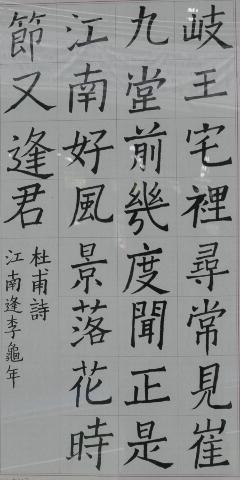 岐王宅裡尋常見崔
九堂前幾度聞正是
江南好風景落花時
節又逢君
杜甫詩
江南逢李龜年